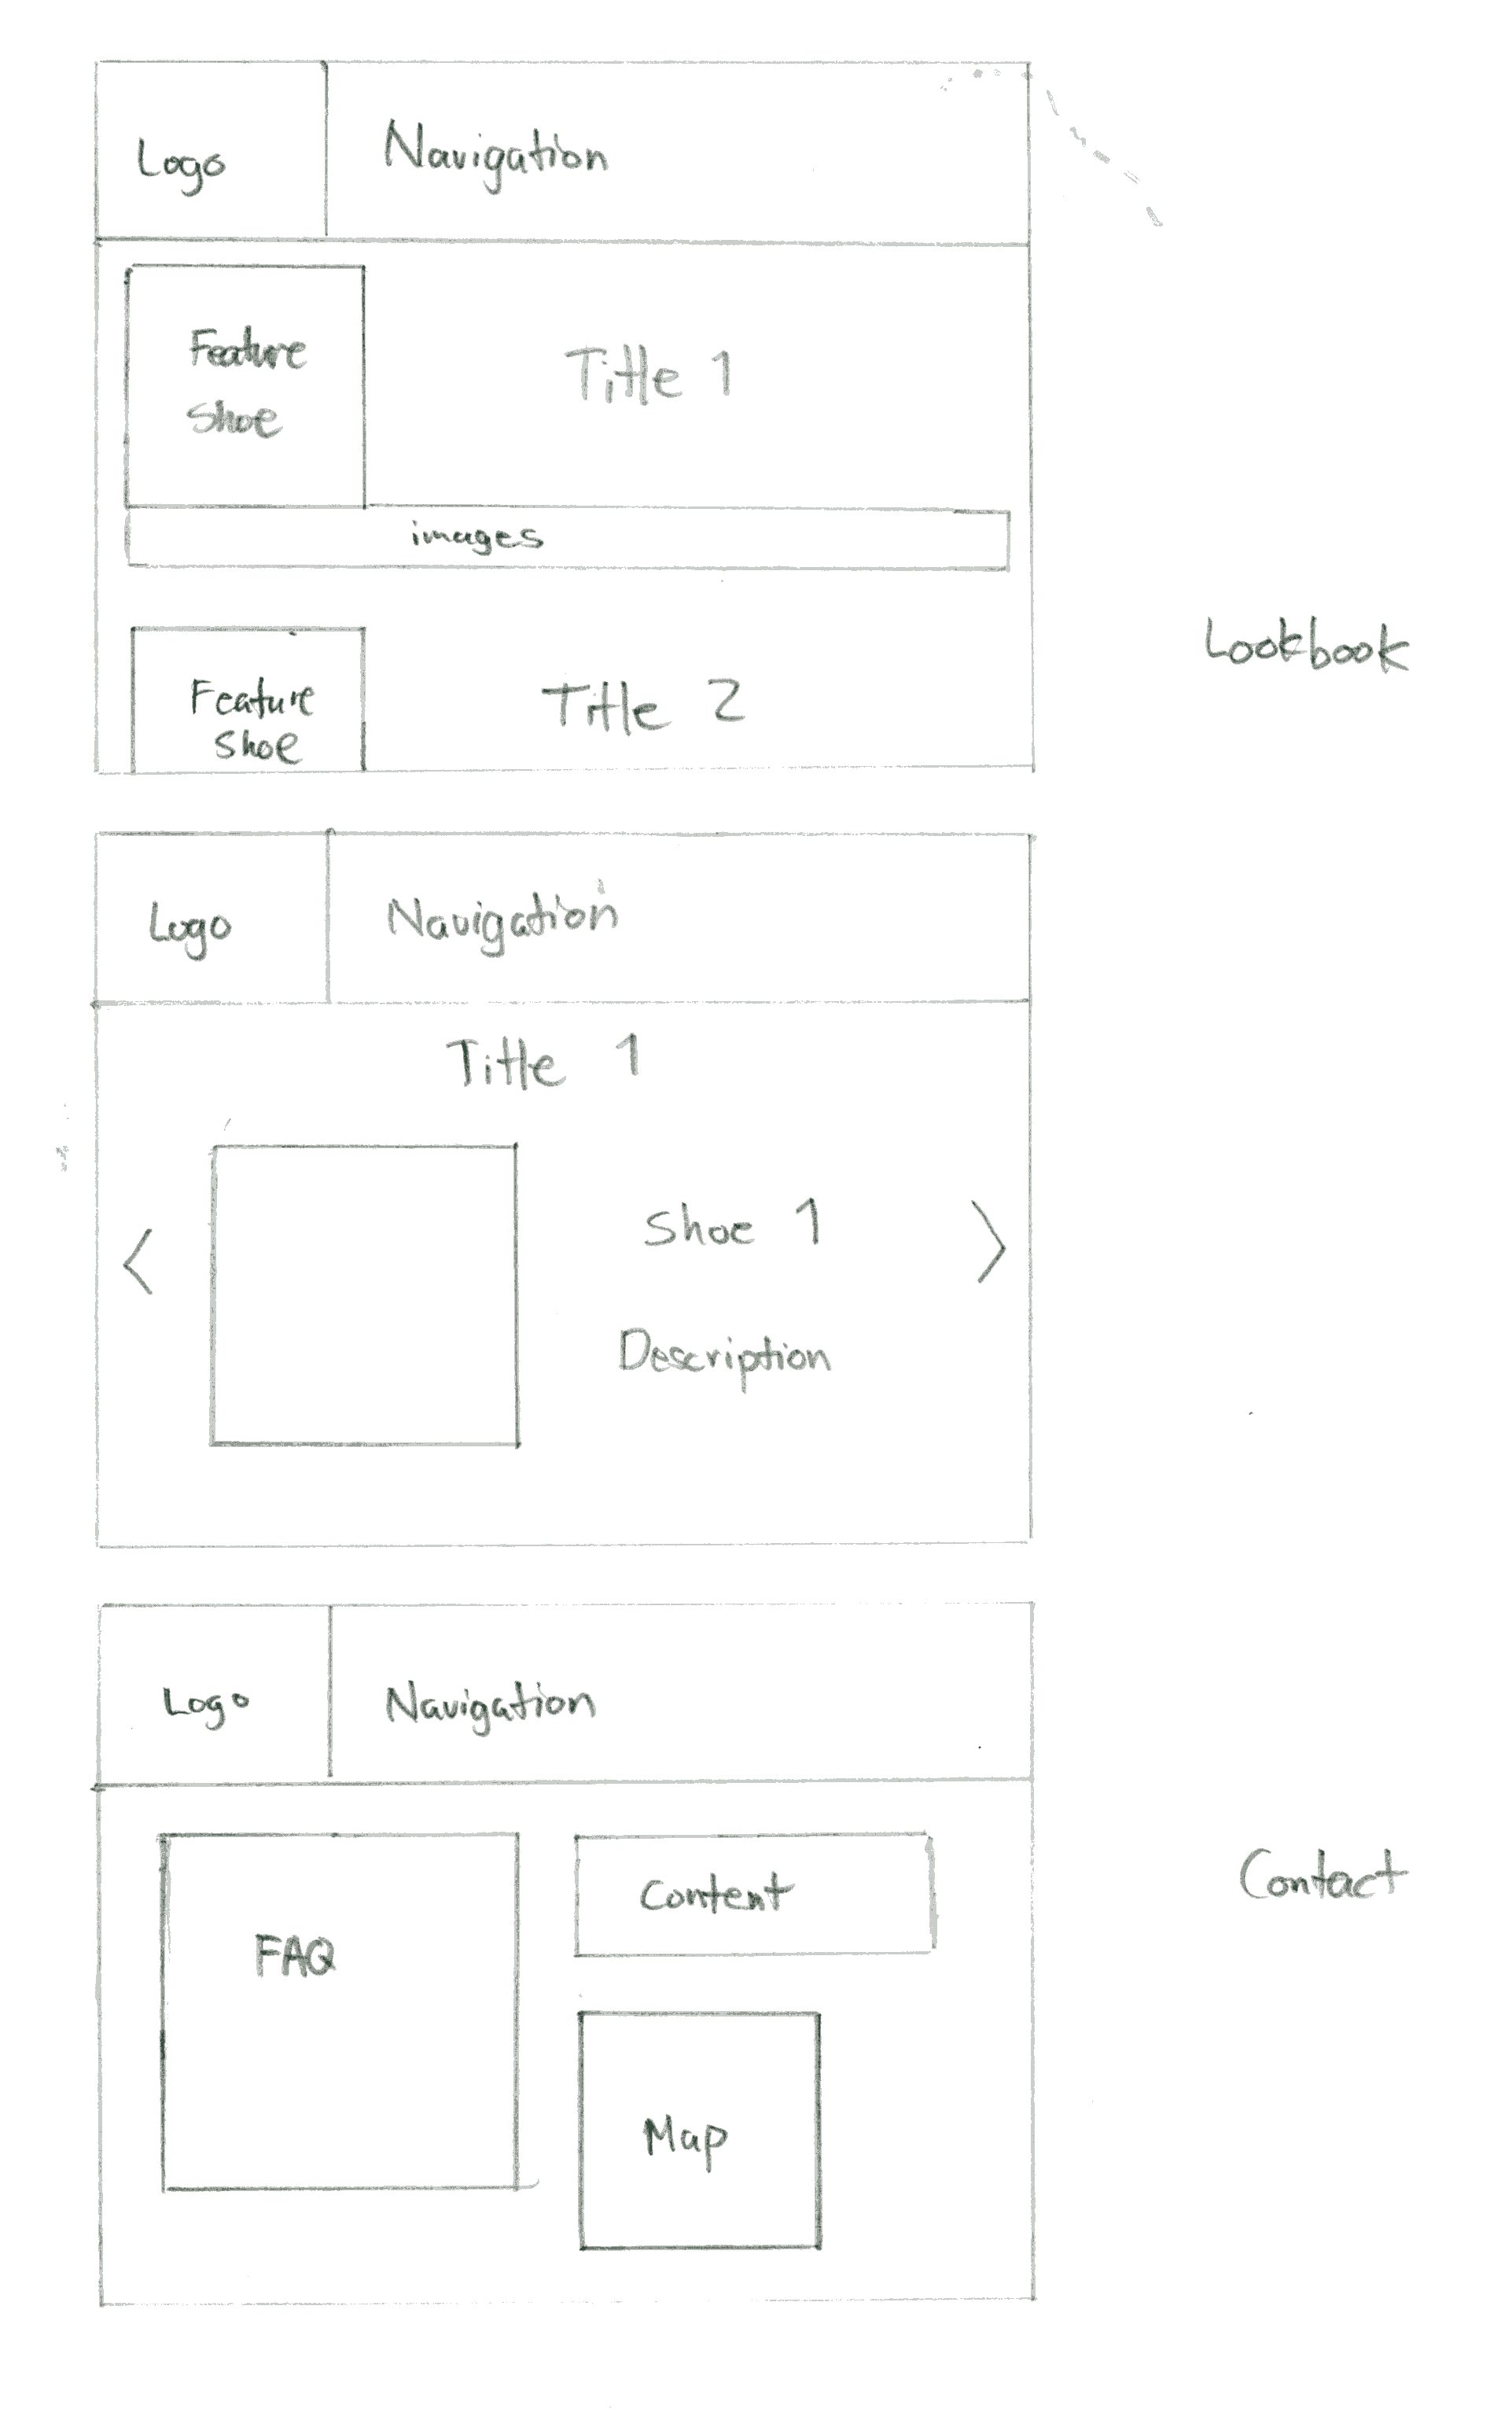 Logo
Navigation
Feature
Shoe
Title 1
images
Feature
Shoe
Title 2
Lookbook
Logo
Navigation
Title 1
<
Shoe 1
>
Description
Logo
Navigation
FAQ
Content
Map
Contact